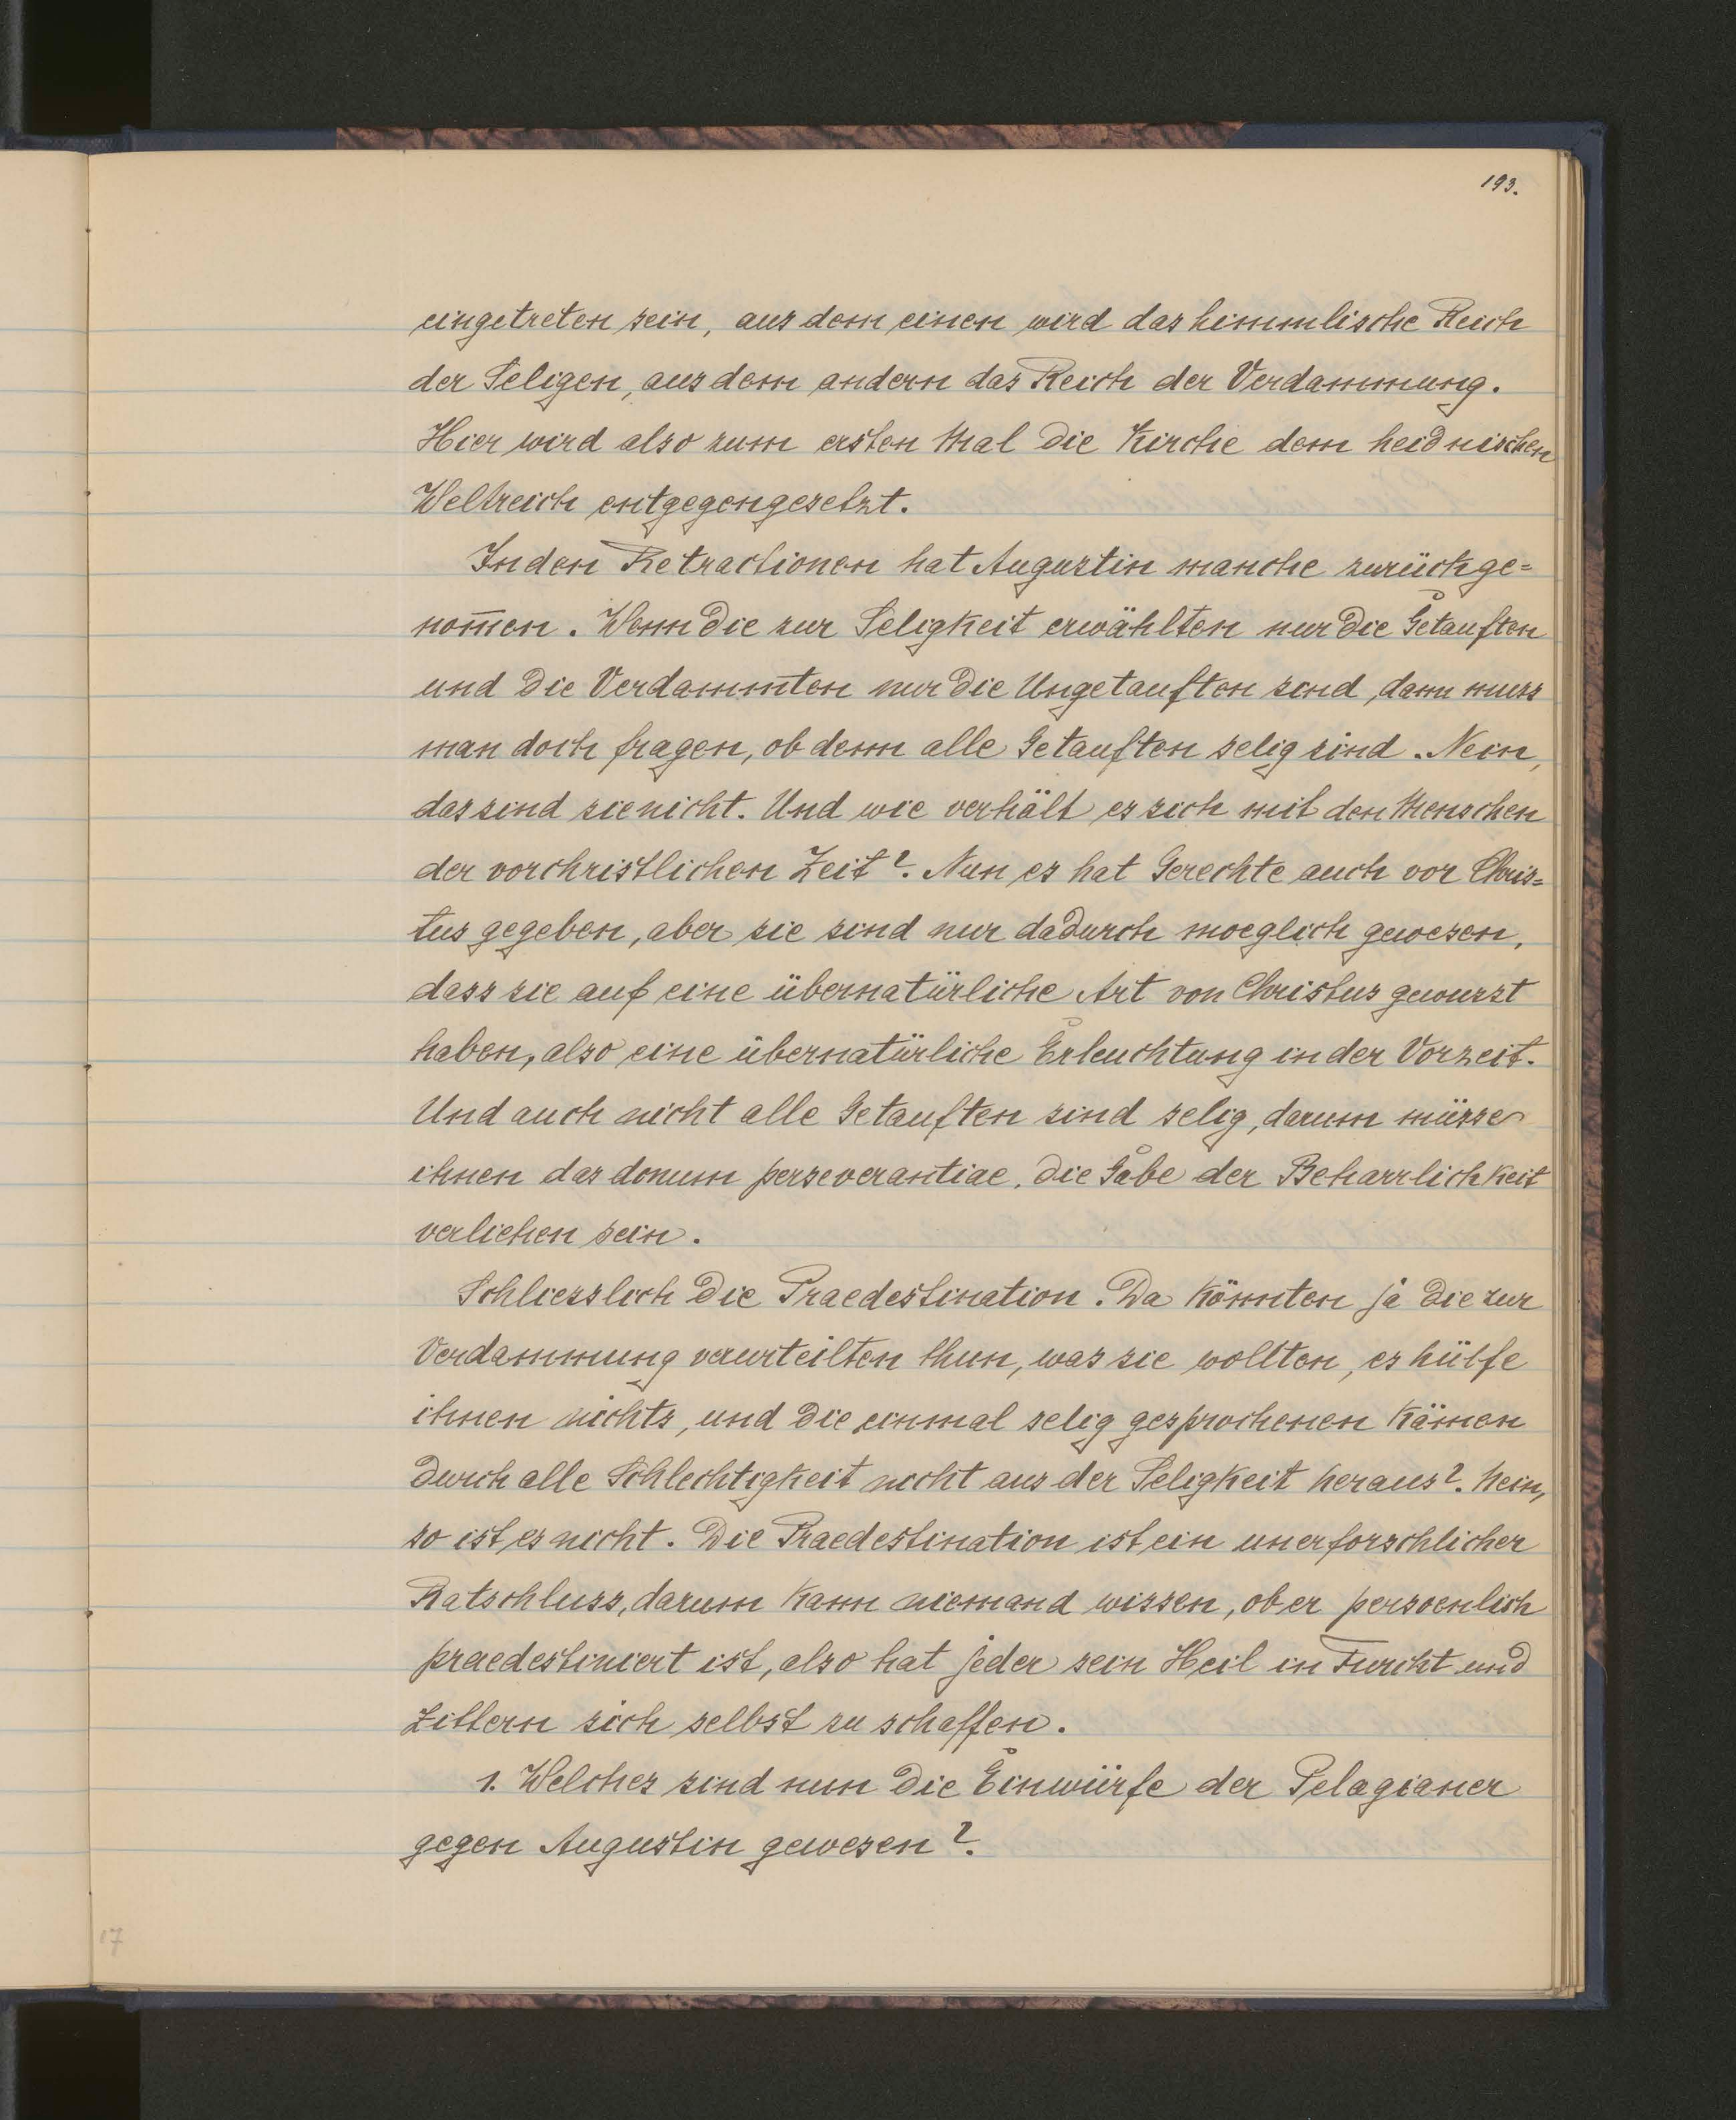 193.
eingetreten sein, aus dem einen wird das himmlische Reich
der Seligen, aus dem andern das Reich der Verdammung.
Hier wird also zum ersten Mal die Kirche dem heidnischen
Weltreich entgegengesetzt.
In den Retractionen hat Augustin manche zurückge=
nom̄en. Wenn die zur Seligkeit erwählten nur die Getauften
und die Verdammten nur die Ungetauften sind, dann muss
man doch fragen, ob denn alle Getauften selig sind. Nein,
das sind sie nicht. Und wie verhält es sich mit den Menschen
der vorchristlichen Zeit? Nun es hat Gerechte auch vor Chris=
tus gegeben, aber sie sind nur dadurch moeglich gewesen,
dass sie auf eine übernatürliche Art von Christus gewusst
haben, also eine übernatürliche Erleuchtung in der Vorzeit.
Und auch nicht alle Getauften sind selig, darum müsse
ihnen das donum perseverantiae, die Gabe der Beharrlichkeit
verliehen sein.
Schliesslich die Praedestination. Da könnten ja die zur
Verdammung verurteilten thun, was sie wollten, es hülfe
ihnen nichts, und die einmal selig gesprochenen kämen
durch alle Schlechtigkeit nicht aus der Seligkeit heraus? Nein,
so ist es nicht. Die Praedestination ist ein unerforschlicher
Ratschluss, darum kann niemand wissen, ob er persoenlich
praedestiniert ist, also hat jeder sein Heil in Furcht und
Zittern sich selbst zu schaffen.
1. Welches sind nun die Einwürfe der Pelagianer
gegen Augustin gewesen?
17